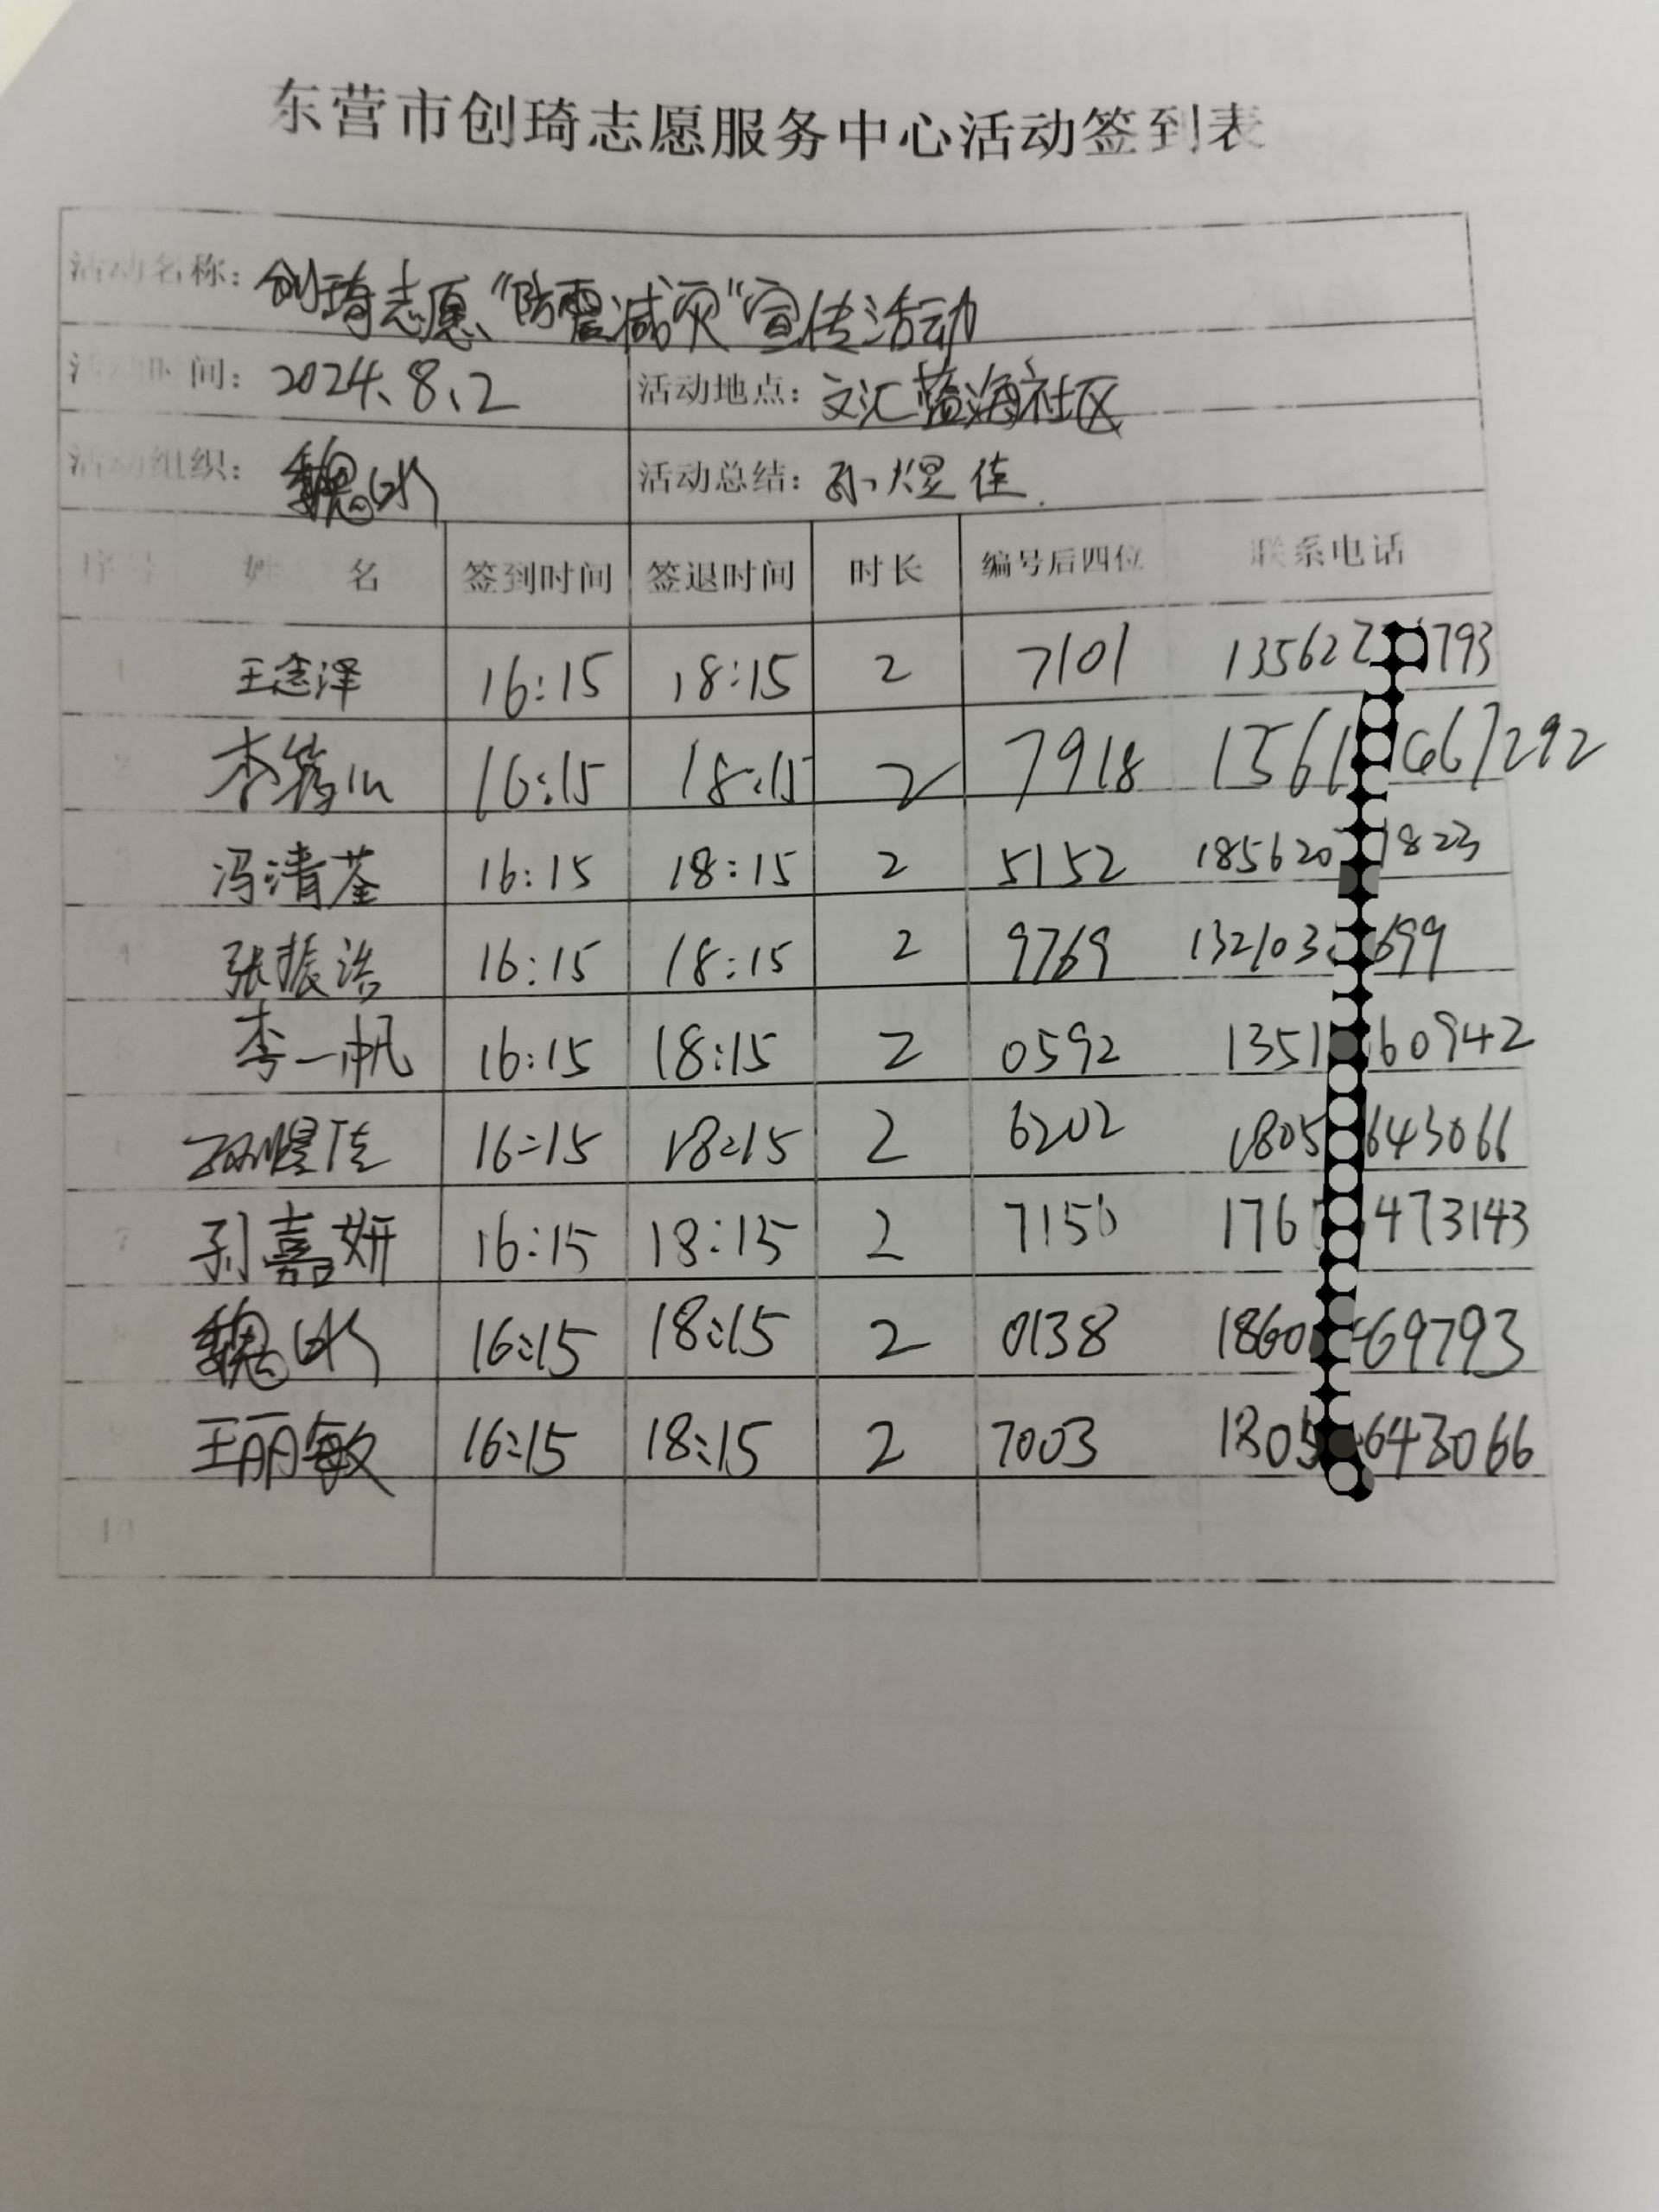 东营市创琦志愿服务中心活动签到表
活动名称： 创琦志愿、“防震减灾”宣传活动
活动时间： 2024、8、2 活动地点： 文汇蓝海社区
活动组织： 魏 活动总结： 孙煜佳
序号 姓 名 签到时间 签退时间 时长 编号后四位 联系电话
1 王念泽 16:15 18:15 2 7101 135622 793
2 李 16:15 18:15 2 7918 1561 667292
3 冯清荃 16:15 18:15 2 5152 185620 1823
4 张振浩 16:15 18:15 2 9769 132103 699
5 李一帆 16:15 18:15 2 0592 1351 60942
6 孙煜佳 16:15 18:15 2 6202 1805 643066
7 孙嘉妍 16:15 18:15 2 7150 176 473143
8 魏 16:15 18:15 2 0138 1860 69793
9 王丽敏 16:15 18:15 2 7003 1805 643066
10